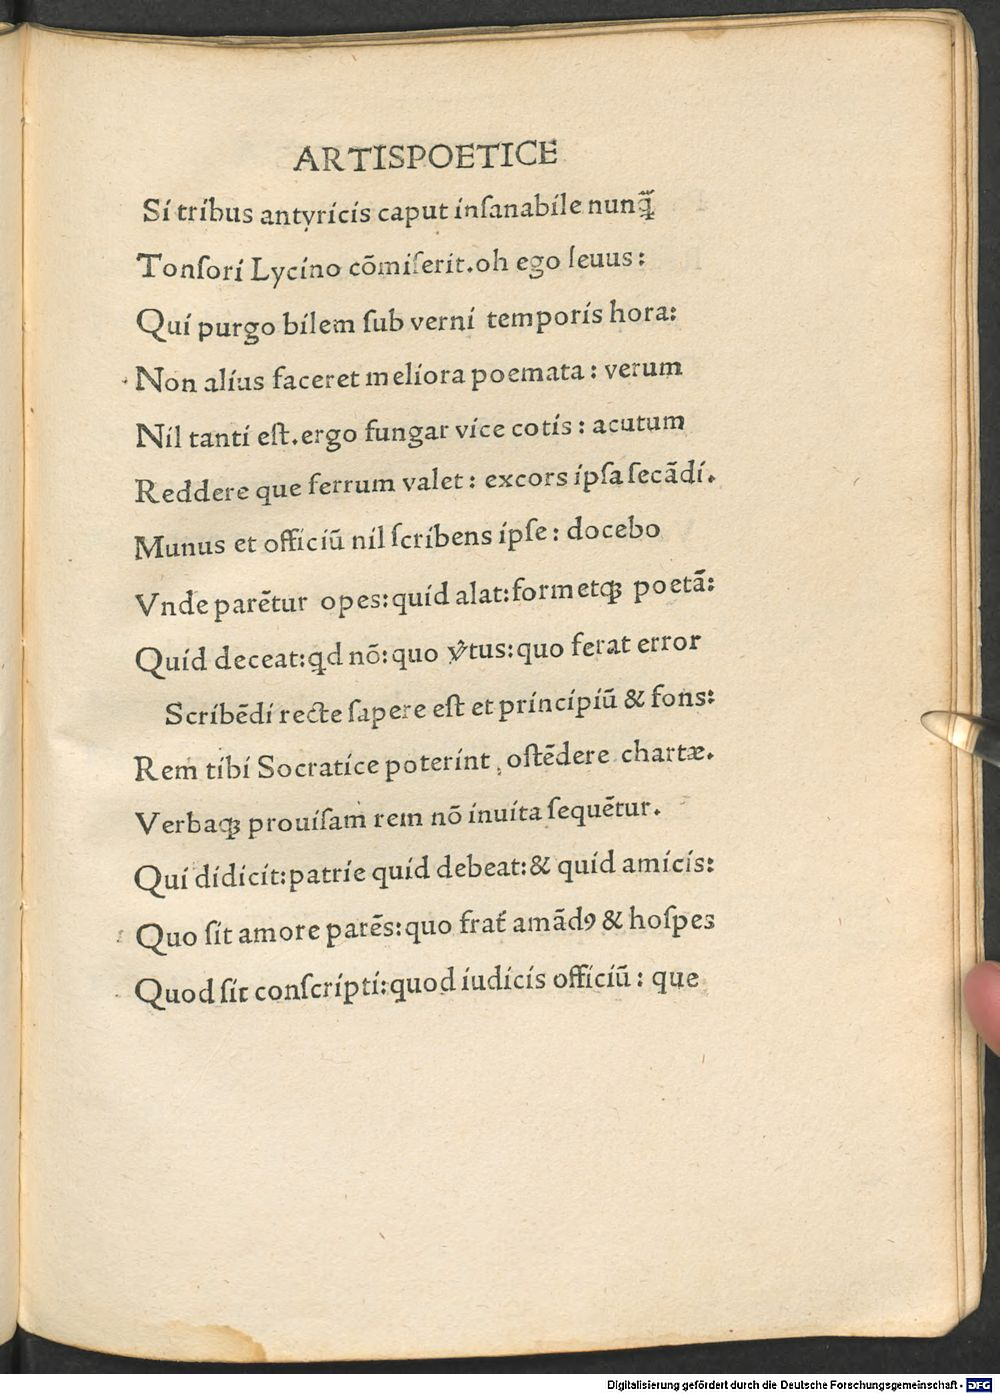 ARTISPOETICE
Si tribus antyricis caput inſanabile nunq̃
Tonſori Lycino cõmiſerit.oh ego leuus:
Qui purgo bilem ſub verni temporis hora:
Non alius faceret meliora poemata: verum
Nil tanti eſt.ergo fungar vice cotis: acutum
Reddere que ferrum valet: excors ipſa ſecãdi.
Munus et officiũ nil ſcribens ipſe: docebo
Vnde parẽtur opes:quid alat:formetqꝫ poetã:
Quid deceat:qd nõ:quo v̓tus:quo ferat error
Scribẽdi recte ſapere eſt et principiũ & fons:
Rem tibi Socratice poterint oſtẽdere chartæ.
Verbaqꝫ prouiſam rem nõ inuita ſequẽtur.
Qui didicit:patrie quid debeat:& quid amicis:
Quo ſit amore parẽs:quo frat̓ amãdꝯ & hoſpes
Quod ſit conſcripti:quod iudicis officiũ: que
Digitalisierung gefördert durch die Deutsche Forschungsgemeinschaft - DFG